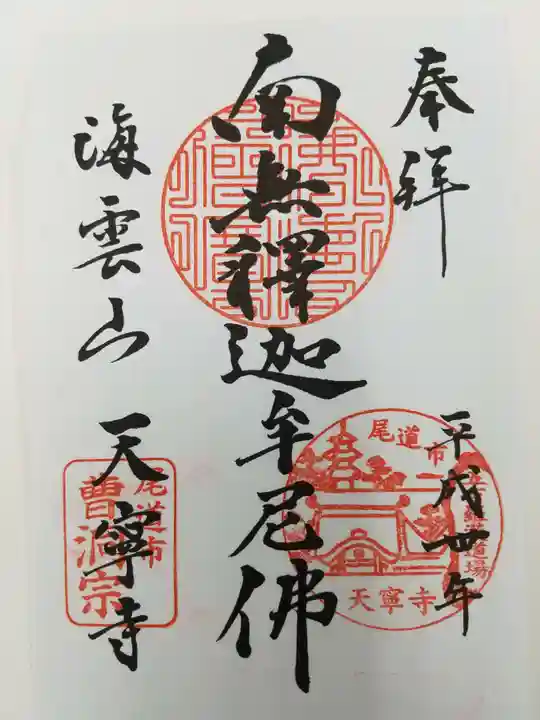 奉拝
平成卅年
南無釋迦牟尼佛
海雲山 天寧寺
尾道市
天寧寺
尾道市
曹洞宗